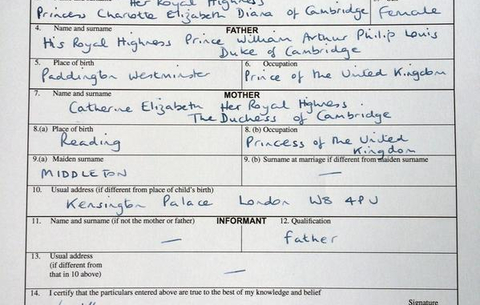 Her Royal Highness
Princess Charlotte Elizabeth Diana of Cambridge
Female
4. Name and surname FATHER
His Royal Highness Prince William Arthur Philip Louis
Duke of Cambridge
5. Place of birth
Paddington Westminster
6. Occupation
Prince of the United Kingdom
7. Name and surname MOTHER
Catherine Elizabeth Her Royal Highness
The Duchess of Cambridge
8.(a) Place of birth
Reading
8. (b) Occupation
Princess of the United
Kingdom
9.(a) Maiden surname
MIDDLETON
9. (b) Surname at marriage if different from maiden surname
—
10. Usual address (if different from place of child's birth)
Kensington Palace London W8 4PU
11. Name and surname (if not the mother or father) INFORMANT 12. Qualification
—
Father
13. Usual address
(if different from
that in 10 above)
—
14. I certify that the particulars entered above are true to the best of my knowledge and belief
Signature